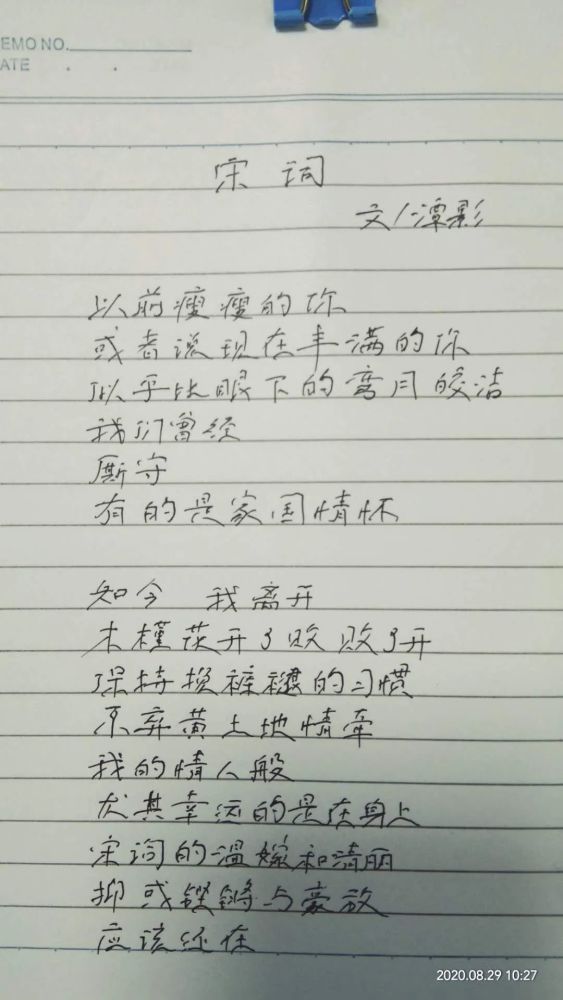 EMO NO.
ATE . .
宋词
文/潭影
以前瘦瘦的你
或者说现在丰满的你
似乎比眼下的弯月皎洁
我们曾经
厮守
有的是家国情怀
如今 我离开
木槿花开了败 败了开
保持换裤褪的习惯
不弃黄土地情牵
我的情人般
尤其幸运的是在身上
宋词的温婉和清丽
抑或铿锵与豪放
应该还在
2020.08.29 10:27